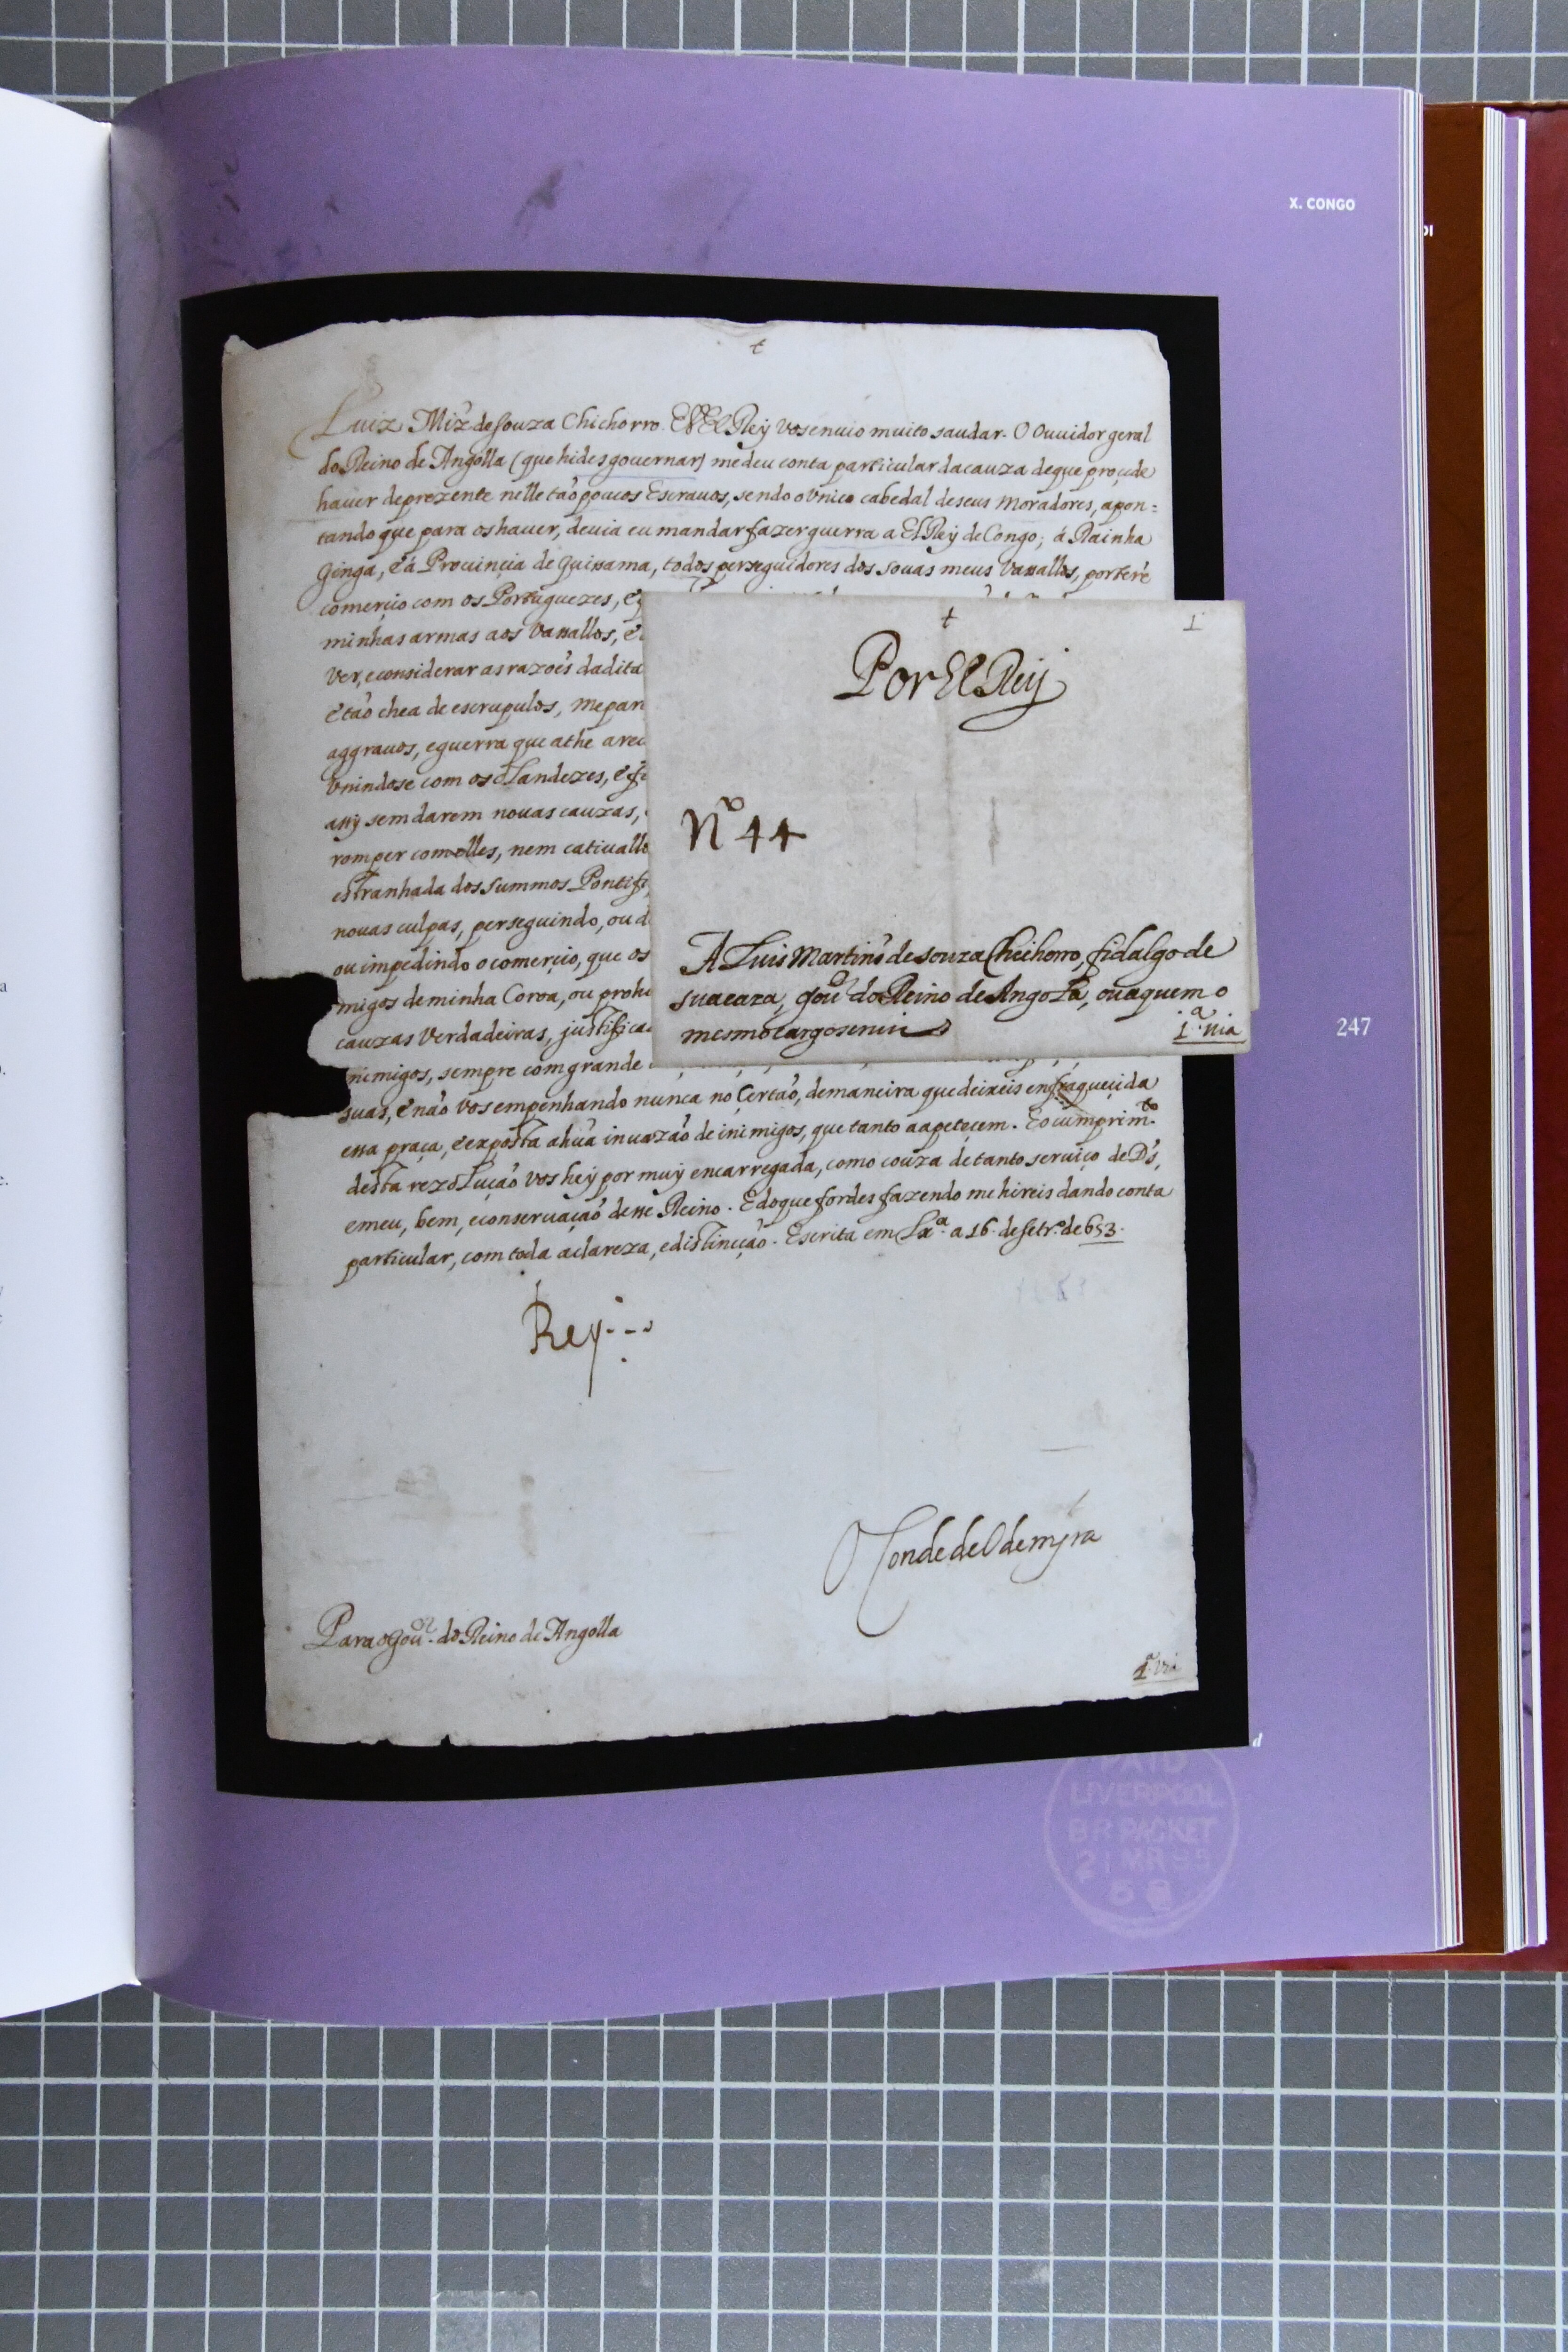 X. CONGO
Luiz Mĩz de souza Chichorro. Eu ElRey vos enuio muito saudar. O Ouuidor geral
do Reino de Angolla (que hides gouernar) me deu conta particular da cauza de que procede
hauer de prezente nelle tão poucos Escrauos, sendo o vnico cabedal de seus moradores, apon=
tando que para os hauer, deuia eu mandar fazer guerra a ElRey de Congo; á Rainha
Ginga, e á Prouincia de Quissama, todos perseguidores dos souas meus Vassallos, por ter ẽ
comerçio com os Portuguezes, e
minhas armas aos Vassallos, e
Ver, e considerar as razoẽs da dita
e tão chea de escrupulos, me par
aggrauos, e guerra que athe a rec
Vnindose com os olandezes, e f
assy sem darem nouas cauzas,
romper com elles, nem catiuallo
estranhada dos summos Pontifi
nouas culpas, perseguindo, ou d
ou impedindo o comerçio, que os
migos de minha Coroa, ou prohi
cauzas Verdadeiras, justifica
inimigos, sempre com grande
suas, e não vos empenhando nunca no Certão, de maneira que deixeis enfraqueçida
essa praça, e exposta a hũa inuazão de inimigos, que tanto a apetecem. E o cumprim.to
desta rezolução vos hey por muy encarregada, como couza de tanto seruiço de D.s,
e meu, bem, e conseruação desse Reino. E do que fordes fazendo me hireis dando conta
particular, com toda a clareza, e distincção. Escrita em Lx.ª a 16. de setr.º de 653.
Rey
O Conde de Odemyra
Para o Gou.or do Reino de Angolla
1.ª via
1
Por El Rey
Nº 44
A Luis Martins de souza Chichorro, fidalgo de
sua caza, Gou.or do Reino de Angola, ou a quem o
mesmo cargo seruir
1.ª via
247
d
PAID
LIVERPOOL
BR PACKET